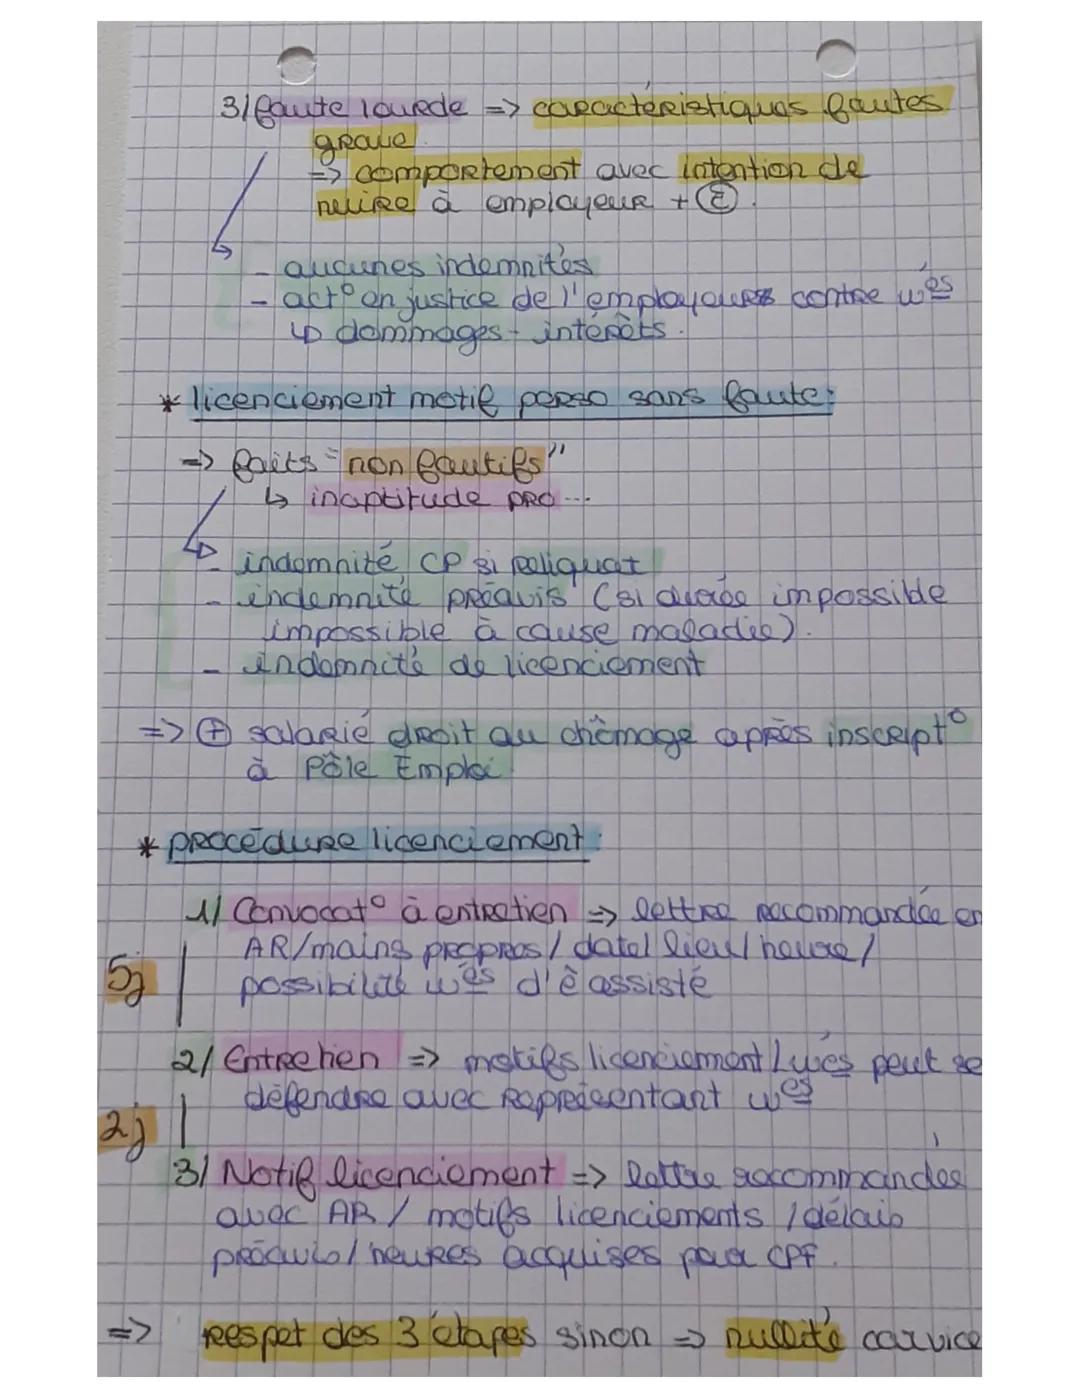 3/ faute lourde => caractéristiques fautes
grave.
=> comportement avec intention de
nuire à employeur + Ⓔ.
- aucunes indemnités
- act° en justice de l'employeurs contre wés
↳ dommages-intérêts.
* licenciement motif perso sans faute:
=> faits "non fautifs"
↳ inaptitude pro...
- indemnité CP si reliquat
- indemnité préavis (si durée impossible
impossible à cause maladie).
- indemnité de licenciement
=> ⊕ salarié droit au chômage après inscript°
à Pôle Emploi
* procédure licenciement:
1/ Convocat° à entretien => lettre recommandée en
AR/mains propres / date/ lieu/ heure/
5j
possibilité wés d'ê assisté
2/ Entretien => motifs licenciement/ wés peut se
défendre avec représentant wés
2j
3/ Notif licenciement => lettre recommandée
avec AR / motifs licenciements / délais
préavis/ heures acquises par CPF.
=> respet des 3 étapes sinon => nullité car vice